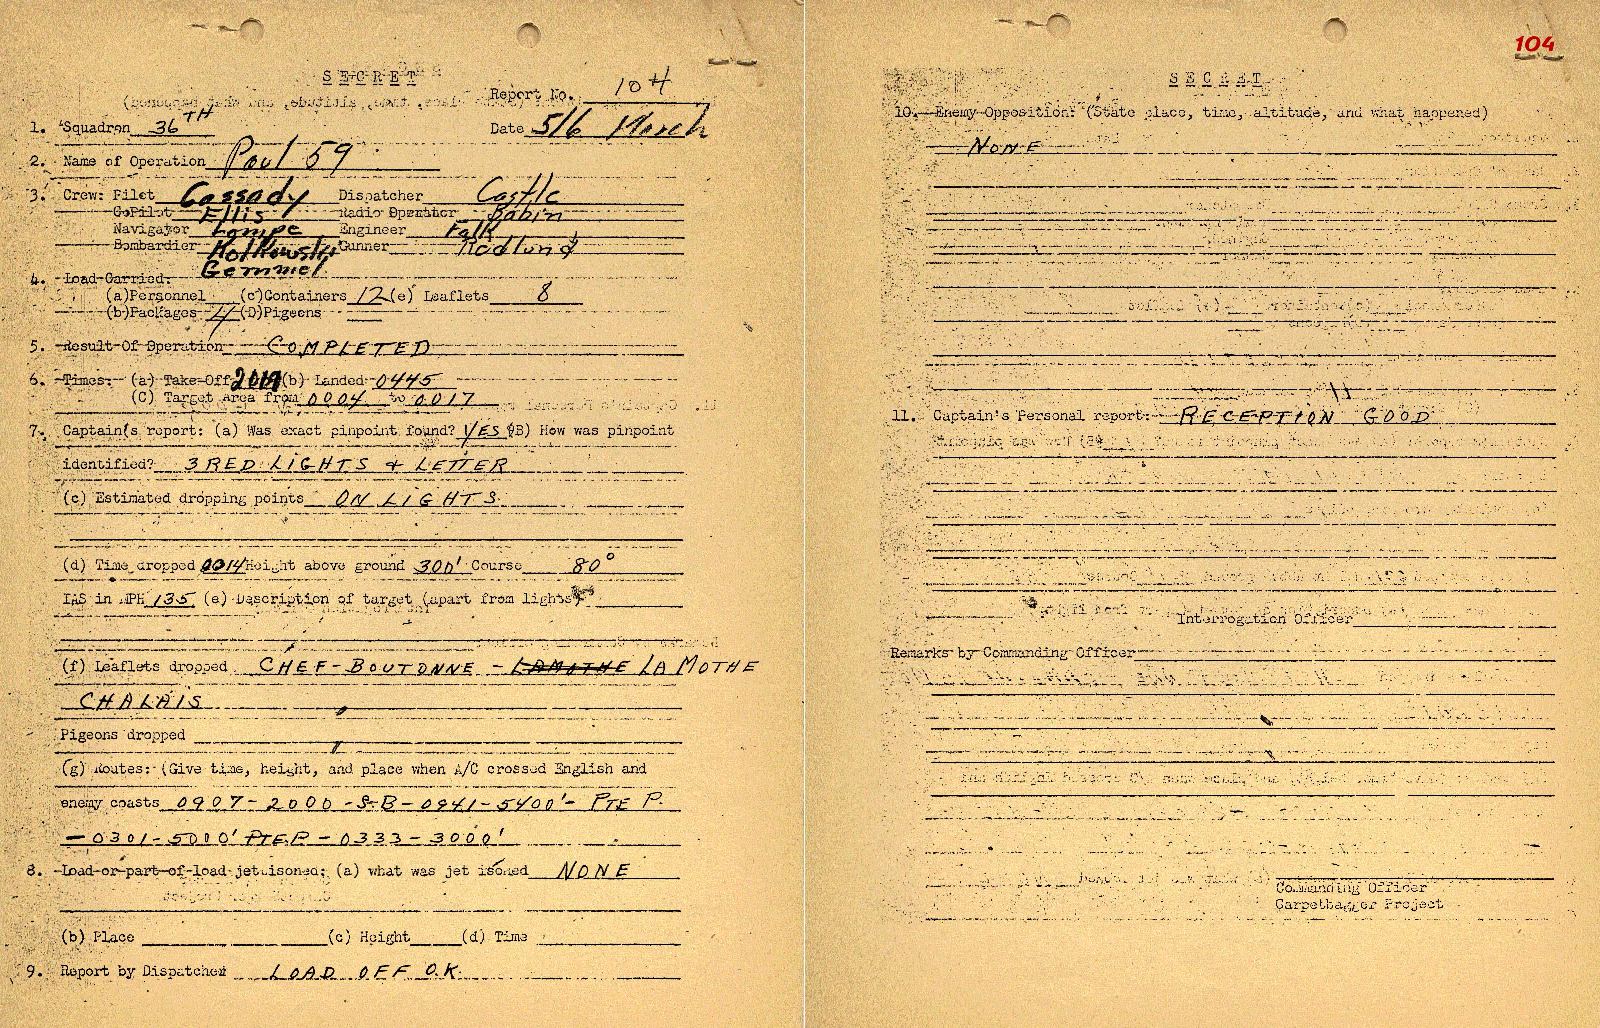 SECRET
Report No. 104
1. Squadron 36TH Date 5/6 March
2. Name of Operation Paul 59
3. Crew: Pilot Cassady Dispatcher Castle
CoPilot Ellis Radio Operator Babin
Navigator Lampe Engineer Falk
Bombardier Gunner Rodlund
Gemmel
4. Load Carried:
(a)Personnel (c)Containers 12 (e) Leaflets 8
(b)Packages 4 (D)Pigeons
5. Result Of Operation COMPLETED
6. Times: (a) Take-Off 2019 (b) Landed 0445
(C) Target area from 0004 to 0017
7. Captain's report: (a) Was exact pinpoint found? YES (B) How was pinpoint
identified? 3 RED LIGHTS & LETTER
(c) Estimated dropping points ON LIGHTS
(d) Time dropped 0014 Height above ground 300' Course 80°
IAS in MPH 135 (e) Description of target (apart from lights)
(f) Leaflets dropped CHEF-BOUTONNE - LAMOTHE LA MOTHE
CHALAIS
Pigeons dropped
(g) Routes: (Give time, height, and place when A/C crossed English and
enemy coasts 0907-2000-S-B-0941-5400'- PTE P.
-0301-5000' PTE.P.-0333-3000'
8. Load or part of load jettisoned: (a) what was jet isoned NONE
(b) Place (c) Height (d) Time
9. Report by Dispatcher LOAD OFF O.K.
104
SECRET
10. Enemy Opposition: (State place, time, altitude, and what happened)
NONE
11. Captain's Personal report: RECEPTION GOOD
Interrogation Officer
Remarks by Commanding Officer
Commanding Officer
Carpetbagger Project